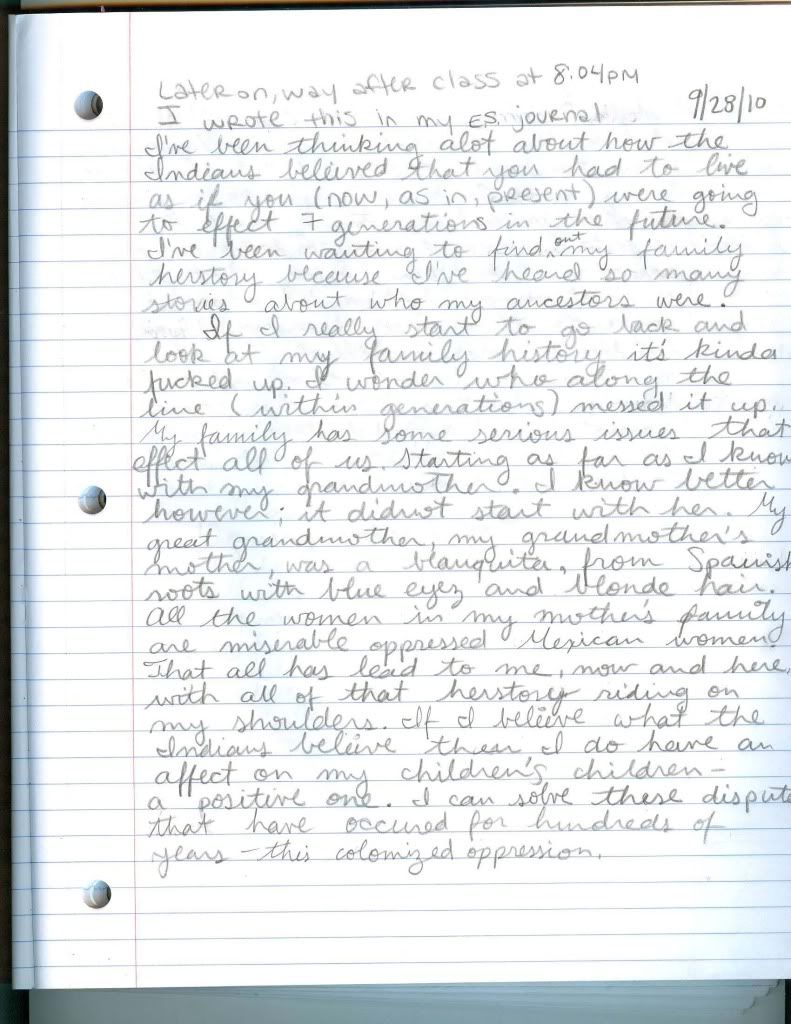 Later on, way after class at 8:04pm
I wrote this in my E.S. journal 9/28/10
I've been thinking alot about how the
Indians beleived that you had to live
as if you (now, as in, present) were going
to effect 7 generations in the future.
I've been wanting to find out my family
herstory because I've heard so many
stories about who my ancestors were.
If I really start to go back and
look at my family history it's kinda
fucked up. I wonder who along the
line (within generations) messed it up.
My family has some serious issues that
effect all of us. Starting as far as I know
with my grandmother. I know better
however; it didnot start with her. My
great grandmother, my grandmother's
mother, was a blanquita, from Spanish
roots with blue eyez and blonde hair.
All the women in my mother's family
are miserable oppressed Mexican women.
That all has lead to me, now and here,
with all of that herstory riding on
my shoulders. If I beleive what the
Indians beleive then I do have an
affect on my children's children -
a positive one. I can solve these dispute
that have occured for hundreds of
years - this colonized oppression.